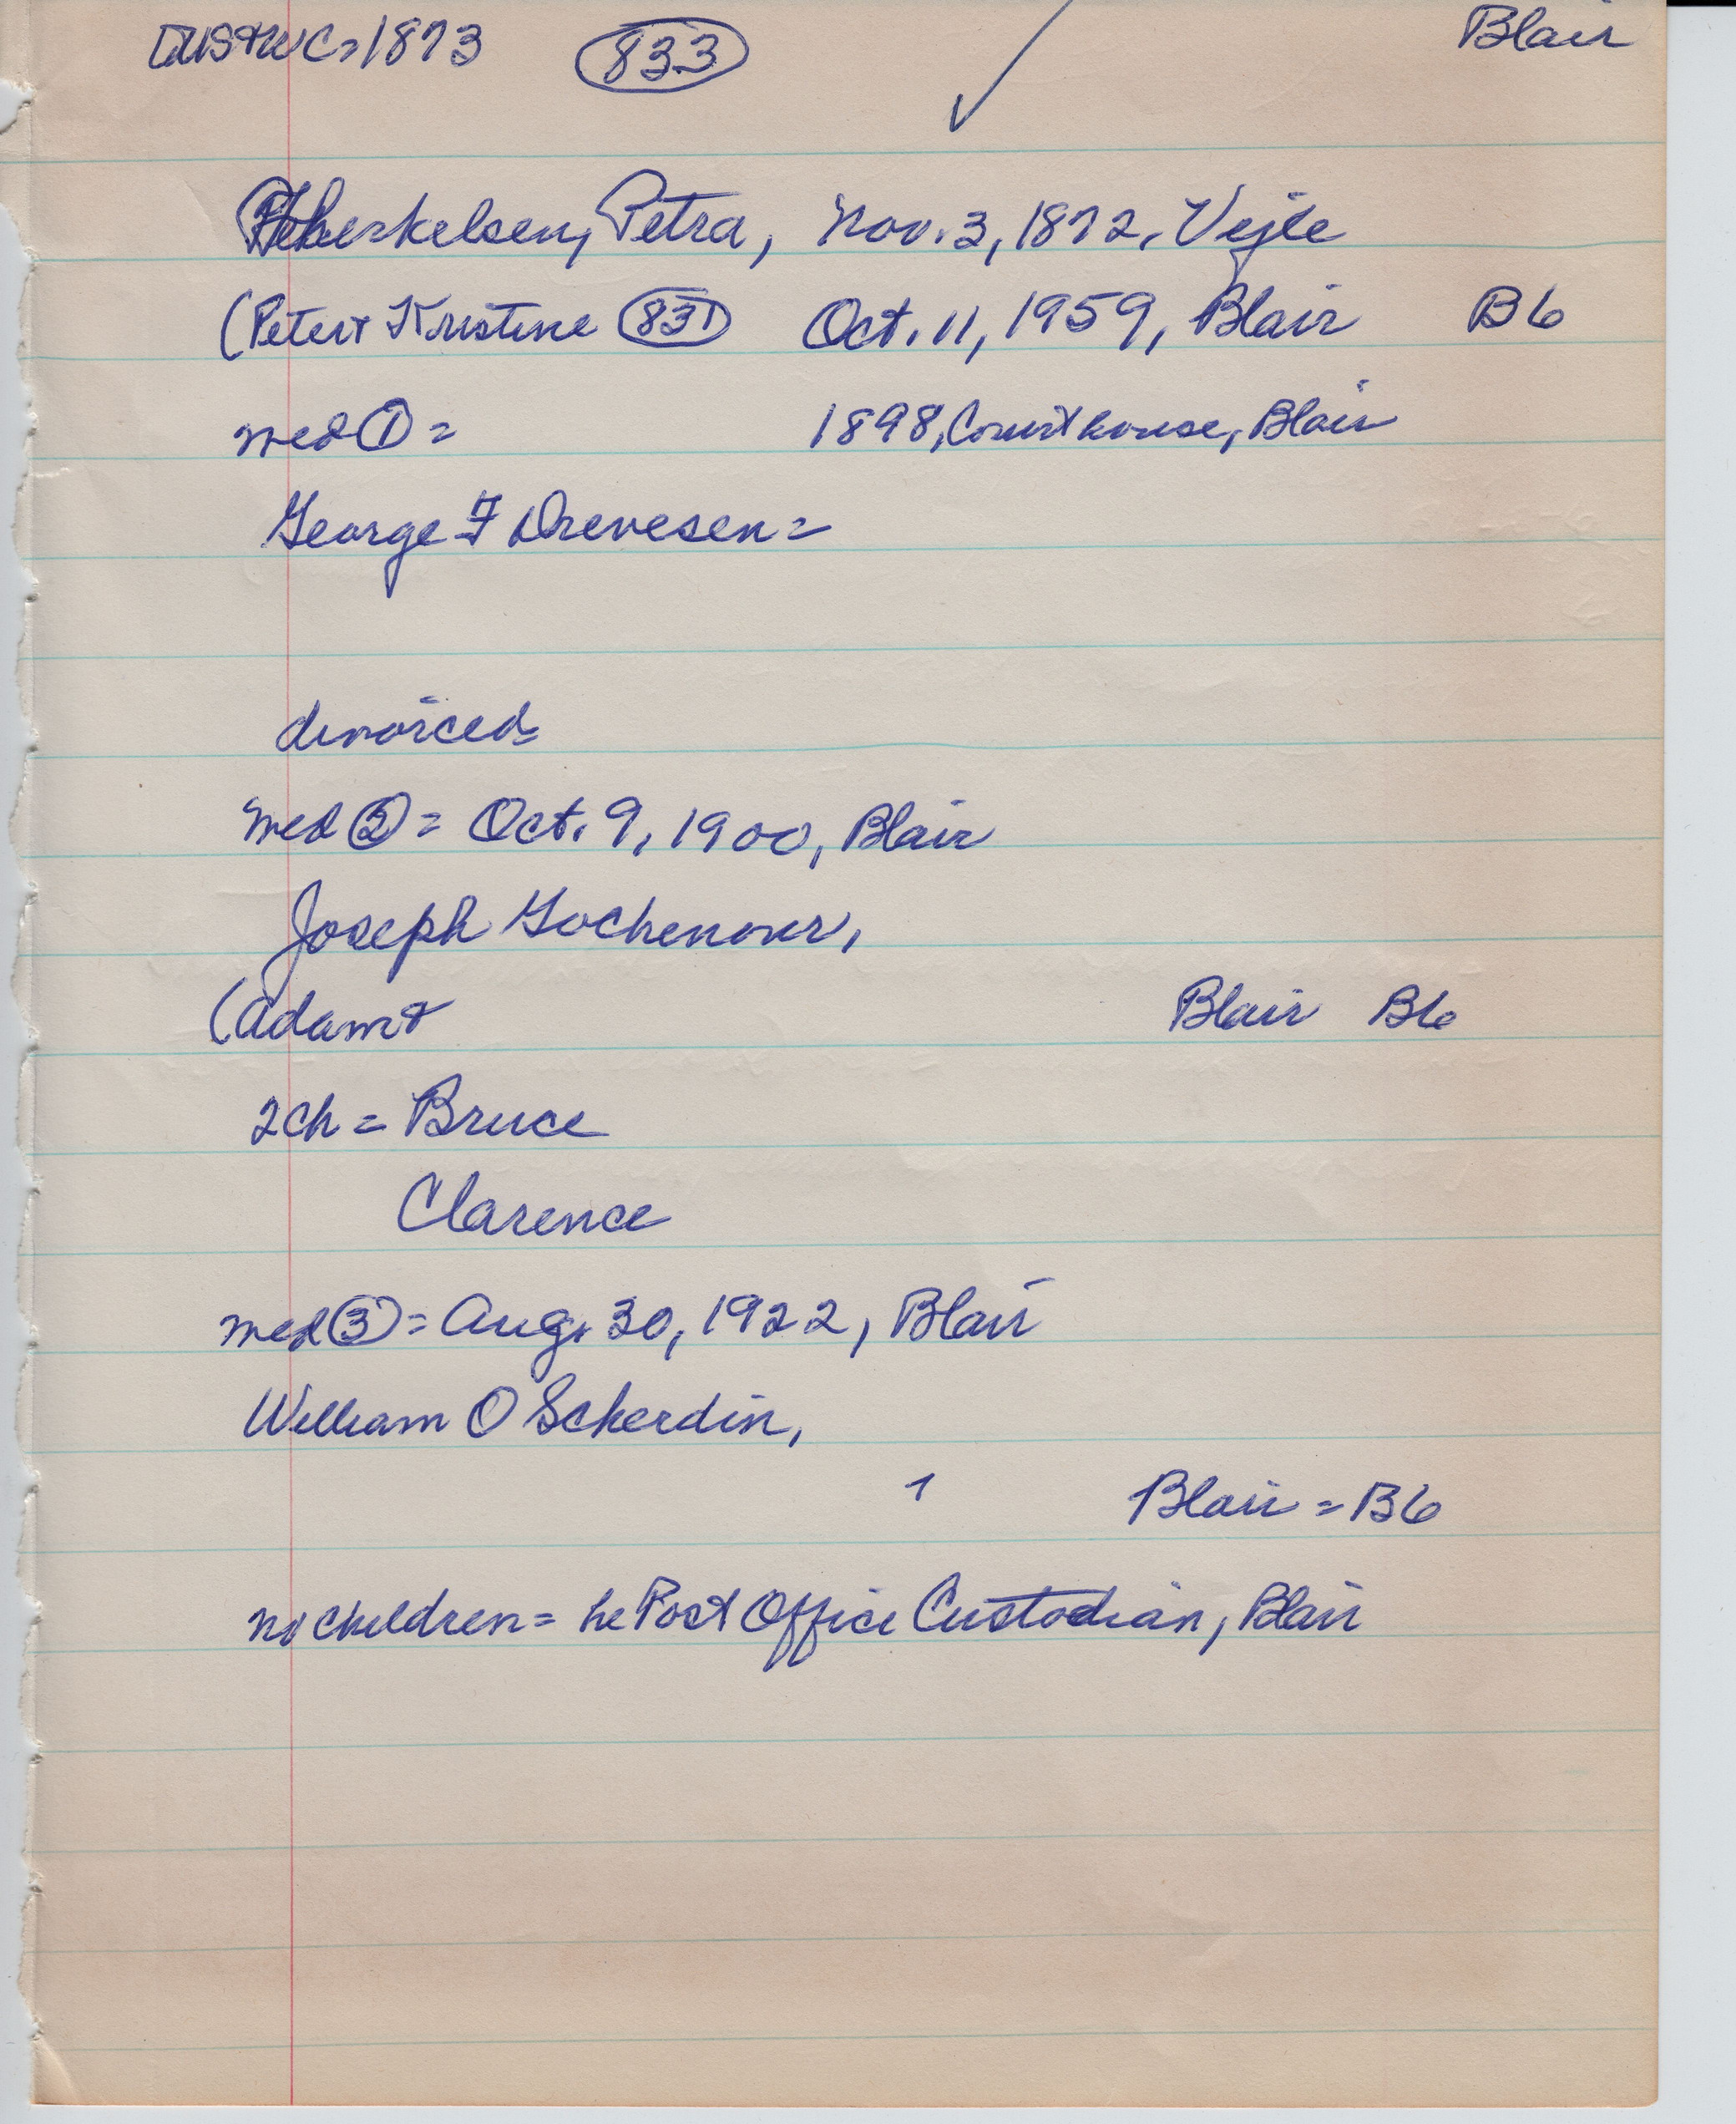 US+WC=1873 (833) ✓ Blair
Petra, Nov. 3, 1872, Vejle
(Peter+ Kristine (831) Oct. 11, 1959, Blair B6
med (1) = 1898, Courthouse, Blair
George F Drevesen=
divorced=
med (2) = Oct. 9, 1900, Blair
Joseph Gochenour,
(Adam+ Blair B6
2ch = Bruce
Clarence
med (3) = Aug. 30, 1922, Blair
William O Scherdin,
Blair = B6
no children = he Post Office Custodian, Blair